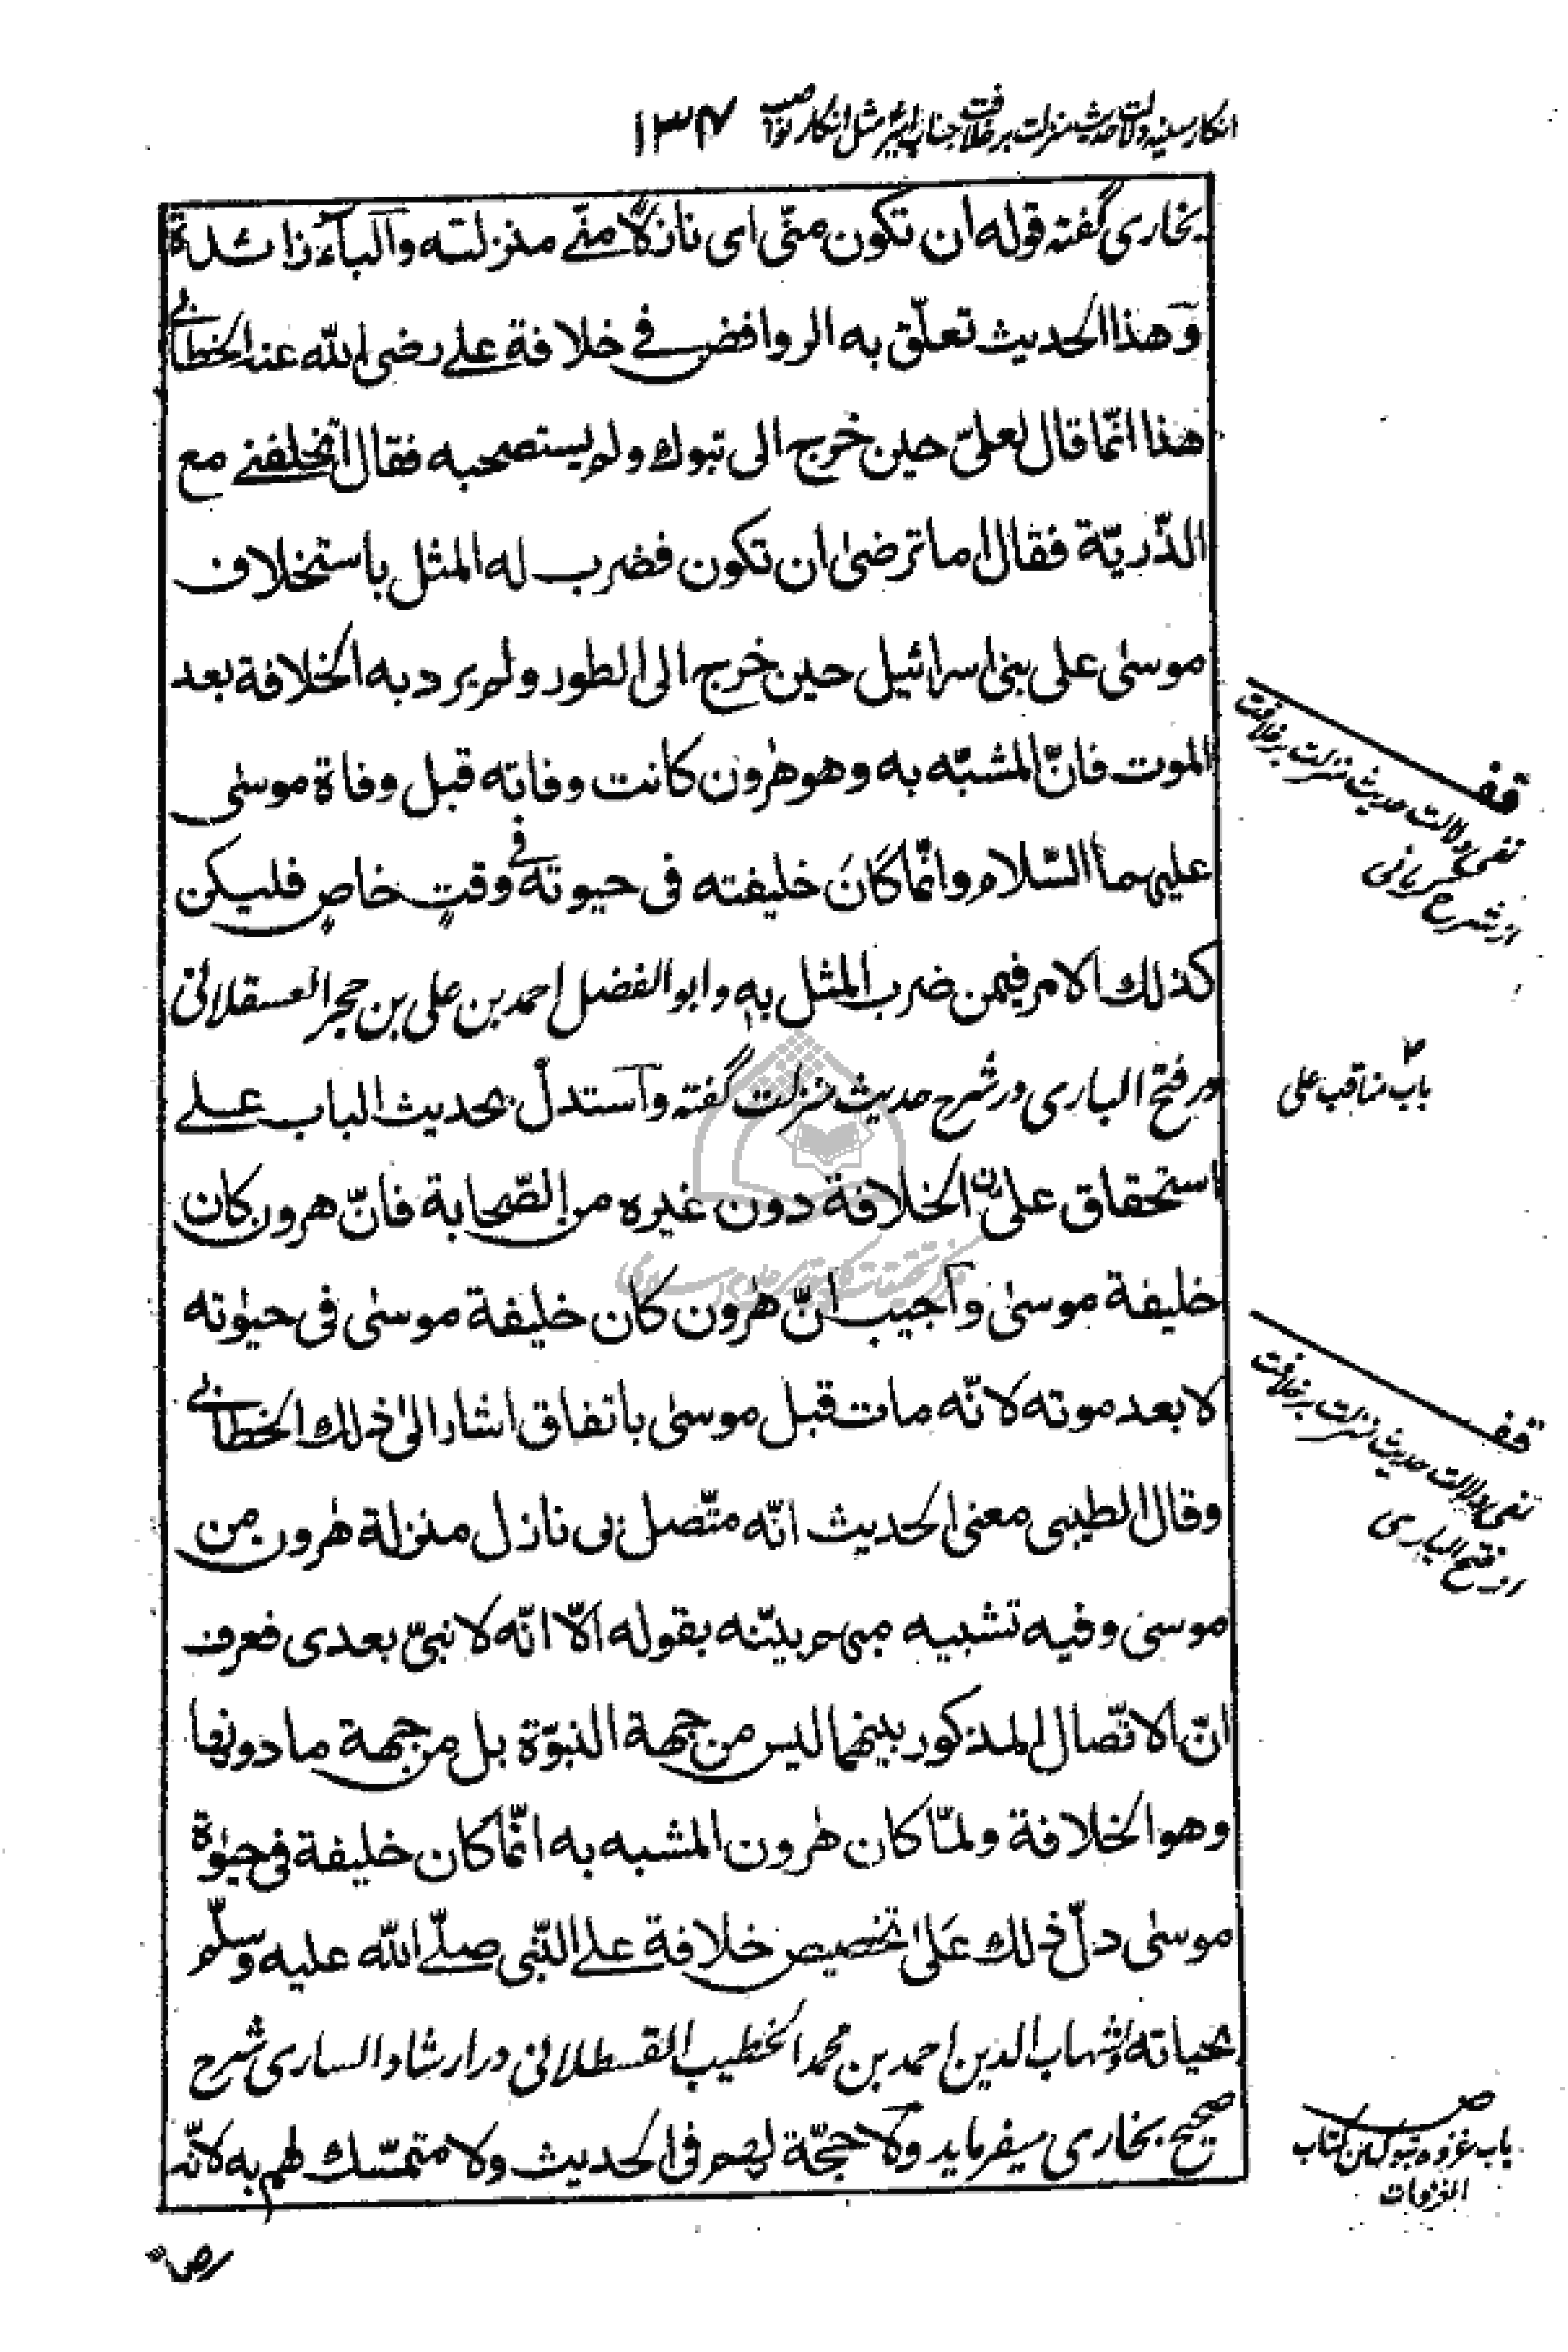 انکار سنیه دلالت حدیث منزلت بر خلافت جناب امیر مثل انکار نواصب ۱۳۴
بخاری گفته قوله ان تکون منّی ای نازلا منّے منزلته والباء زائدة
وهذا الحدیث تعلّق به الروافض فے خلافة علے رضی الله عنه الخطابی
هذا انّما قال لعلیّ حین خرج الی تبوك ولم یستصحبه فقال اتخلفنے مع
الذّریّة فقال اما ترضیٰ ان تکون فضرب له المثل باستخلاف
موسیٰ علی بنی اسرائیل حین خرج الی الطور ولم یرد به الخلافة بعد
الموت فانّ المشبّه به وهو هٰرون کانت وفاته قبل وفاة موسٰی
علیهما السّلام وانّما کَانَ خلیفته فی حیوته فی وقتٍ خاصٍ فلیکن
کذلك الامر فیمن ضرب المثل به وابو الفضل احمد بن علی بن حجر العسقلانی
در فتح الباری در شرح حدیث منزلت گفته واستدلّ بحدیث الباب علے
استحقاق علیّ الخلافة دون غیره من الصّحابة فانّ هرون کان
خلیفة موسیٰ واجیب انّ هٰرون کان خلیفة موسٰی فی حیٰوته
لا بعد موته لانّه مات قبل موسیٰ باتفاق اشار الیٰ ذلك الخطابی
وقال الطیبی معنی الحدیث انّه متّصل بی نازل منزلة هٰرون من
موسیٰ وفیه تشبیه مبهم بیّنه بقوله الّا انّه لا نبیّ بعدی فعرف
انّ الاتّصال المذکور بینهما لیس من جهة النبوّة بل من جهة ما دونها
وهو الخلافة ولمّا کان هٰرون المشبه به انّما کان خلیفة فی حیٰوة
موسیٰ دلّ ذلك عَلیٰ تخصیص خلافة علے النّبی صلّے الله علیه وسلّم
بحیاته وشهاب الدین احمد بن محمد الخطیب القسطلانی در ارشاد الساری شرح
صحیح بخاری میفرماید ولا حجّة لهم فی الحدیث ولا متمسّك لهم به لانّه
قف
نفی دلالت حدیث منزلت بر خلافت
از شرح کرمانی
باب مناقب علی
قف
نفی دلالت حدیث منزلت بر خلافت
از فتح الباری
باب غزوه تبوك من کتاب
الغزوات